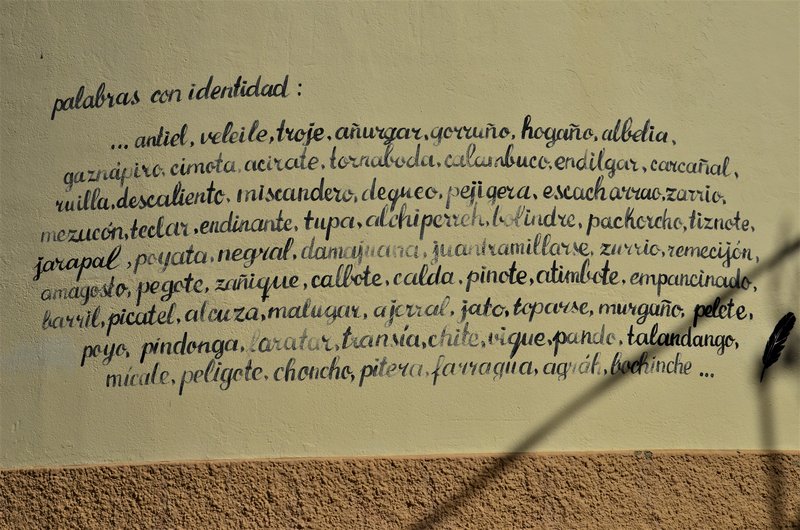 palabras con identidad :
... antiel, veleile, troje, añurgar, gorruño, hogaño, albelia,
gaznápiro, cimota, acirate, tornaboda, calambuco, endilgar, carcañal,
ruilla, descaliento, miscandero, degueo, pejigera, escacharrao, zarrio,
mezucón, teclar, endinante, tupa, bolindre, pachorcho, tiznote,
jarapal, poyata, negral, damajuana, juantramillarse, zurrio, remecijón,
amagosto, pegote, zañique, calbote, calda, pinote, atimbote, empancinado,
barril, picatel, alcuza, malugar, ajerral, jato, toparse, murgaño, pelete,
poyo, pindonga, faratar, transía, chite, vique, pando, talandango,
mícale, peligote, choncho, pitera, farragua, agráh, bochinche ...